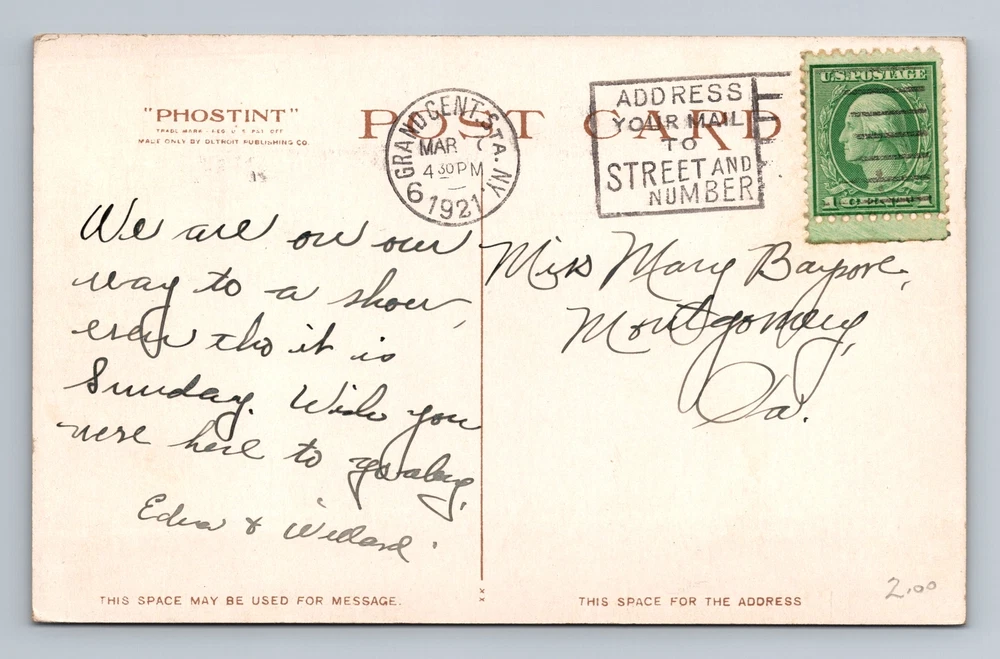 "PHOSTINT"
TRADE MARK - REG. U.S. PAT. OFF.
MADE ONLY BY DETROIT PUBLISHING CO.
POST CARD
GRAND CENT. STA. N.Y.
MAR 7
4 30 PM
6 1921
ADDRESS
YOUR MAIL
TO
STREET AND
NUMBER
U.S. POSTAGE
1 CENT 1
We are on our
way to a show,
even tho it is
Sunday. Wish you
were here to go along.
Edna & Willard.
Miss Mary
Montgomery,
Pa.
THIS SPACE MAY BE USED FOR MESSAGE.
THIS SPACE FOR THE ADDRESS
2.00